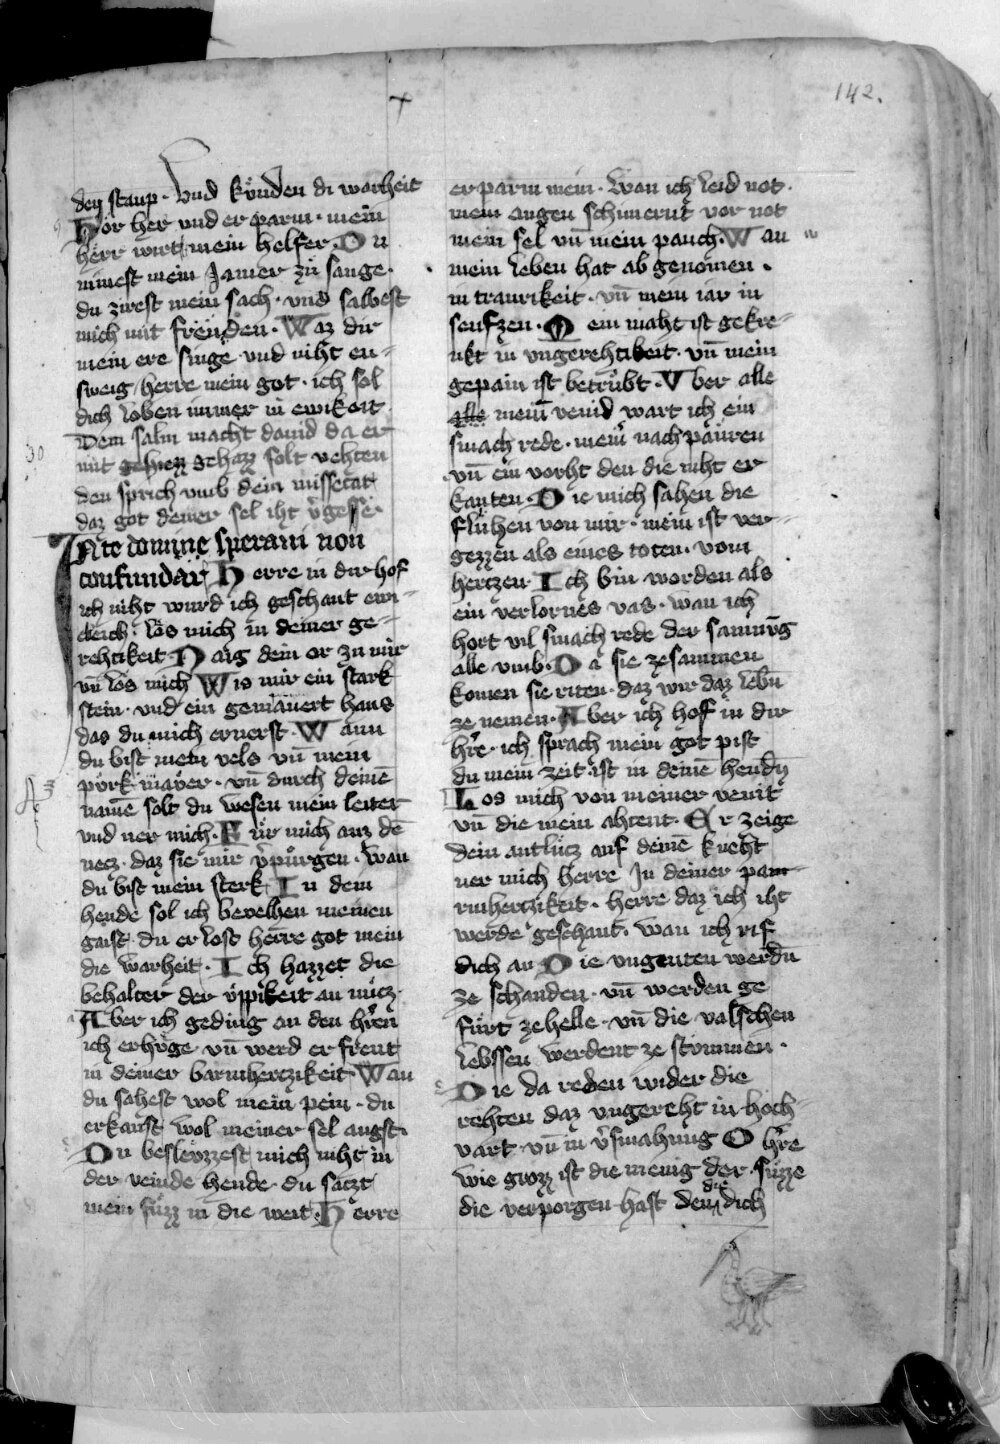 142.
den staup · Vnd kunden di warheit
Hör her vnd er parm · mein
herr wirt mein helfer. Du
nimest mein Jamer zu sange ·
du zirest mein sach · vnd salbest
mich mit freuden · Waz dir
mein ere singe vnd niht en-
sweig / herre mein got · ich sol
dich loben immer in ewikeit
Dem salm macht dauid da er
mit schazz solt vehten
den sprich vmb dein missetat
daz got deiner sel iht v̄gesse
IN te domine speraui non
confundar Herre in dir hof
ich niht wurd ich geschant ewi-
cleich · lös mich in deiner ge-
rehtikeit · Naig dein or zu mir
vn̄ lös mich Wis mir ein stark
stein · vnd ein gemauert haus
das du mich ernerst · Wann
du bist mein vels vn̄ mein
pürk mawer · vn̄ durch deinē
namē solt du wesen mein leiter
vnd ner mich · Für mich auz dē
necz · daz sie mir v̄purgen · Wan
du bist mein sterk In dein
hende sol ich bevelhen meinen
gaist du er lost herre got mein
die warheit · Ich hazzet die
behalter der vppikeit an nücz ·
Aber ich geding an den hr̄en
ich erhöge vn̄ werd er freut
in deiner barmhertzikeit · Wan
du sahest wol mein pein · du
erkanst wol meiner sel angst ·
Du besleuzzest mich niht in
der veinde hende · du saczt
mein füzz in die weit · Herre
er parm mein · Wan ich leid not ·
mein augen schmernt vor not
mein sel vn̄ mein pauch · Wan
mein leben hat ab genomen ·
in traurikeit · vn̄ mein iar in
seufzen · Mein maht ist gekre-
nkt in vngerehtikeit · vn̄ mein
gepain ist betrubt · Vber alle
alle mein veind wart ich ein
smach rede · mein nach pauren
vn̄ ein vorht den die niht er
kanten · Die mich sahen die
fluhen von mir · mein ist ver-
gezzen als eines toten · vom
hertzen · Ich bin worden als
ein verlornes vas · wan ich
hort vil smach rede der samnūg
alle vmb · Da sie zesammen
komen sie riten · daz wir daz lebn̄
ze nemen · Aber ich hof in dir
hr̄e · ich sprach mein got pist
du mein zeit ist in deinē hendn̄
Los mich von meiner veint
vn̄ die mein ahtent · Er zeige
dein antlücz auf deinē kneht
ner mich herre In deiner parm
rmhertzikeit · herre daz ich iht
werde geschant · wan ich rif
dich an Die vnguten werdn̄
ze schanden · vn̄ werden ge
fürt ze helle · vn̄ die valschen
lebssen werdent ze stummen ·
Die da reden wider die
rehten daz vngereht in hoch-
vart · vn̄ in v̄smahung O hr̄e
wie grozz ist die menig der süzze
die verporgen hast den die dich